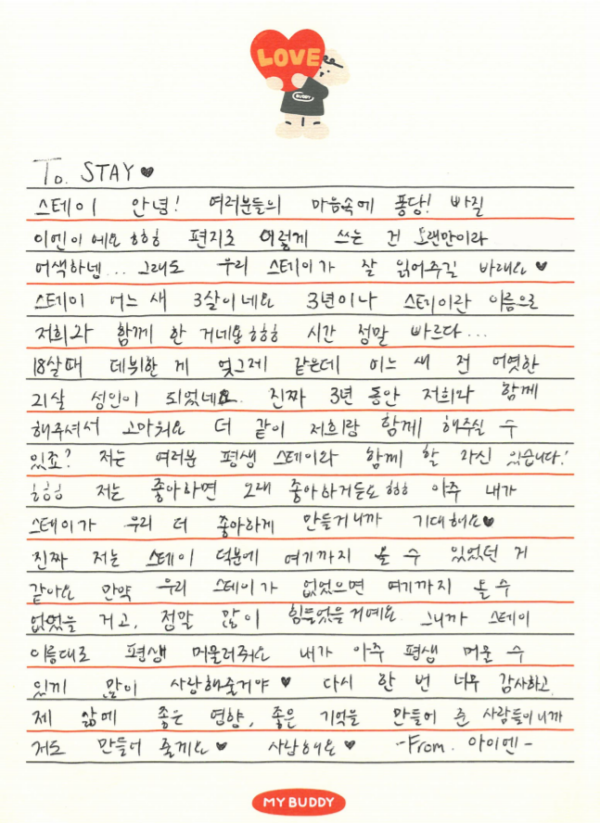 LOVE
BUDDY
To. STAY ♥
스테이 안녕! 여러분들의 마음속에 퐁당! 빠질
이엔이에요 ㅎㅎㅎ 편지로 이렇게 쓰는 건 오랜만이라
어색하넴... 그래도 우리 스테이가 잘 읽어주길 바래요 ♥
스테이 어느 새 3살이네요 3년이나 스테이란 이름으로
저희과 함께 한 거네요 ㅎㅎㅎ 시간 정말 빠르다...
18살때 데뷔한 게 엊그제 같은데 어느 새 전 어엿한
21살 성인이 되었네요. 진짜 3년 동안 저희과 함께
해주셔서 고마워요 더 같이 저희랑 함께 해주실 수
있죠? 저는 여러분 평생 스테이와 함께 할 자신 있습니다!
ㅎㅎㅎ 저는 좋아하면 오래 좋아하거든요 ㅎㅎㅎ 아주 내가
스테이가 우리 더 좋아하게 만들거니까 기대해요♥
진짜 저는 스테이 덕분에 여기까지 올 수 있었던 거
같아요 만약 우리 스테이가 없었으면 여기까지 올 수
없었을 거고, 정말 많이 힘들었을거예요 그니까 스테이
이름대로 평생 머물러줘요 내가 아주 평생 머물 수
있게 많이 사랑해줄거야 ♥ 다시 한 번 너무 감사하고
제 삶에 좋은 영향, 좋은 기억을 만들어 준 사람들이니까
저도 만들어 줄게요 ♥ 사랑해요 ♥ -From. 아이엔-
MY BUDDY